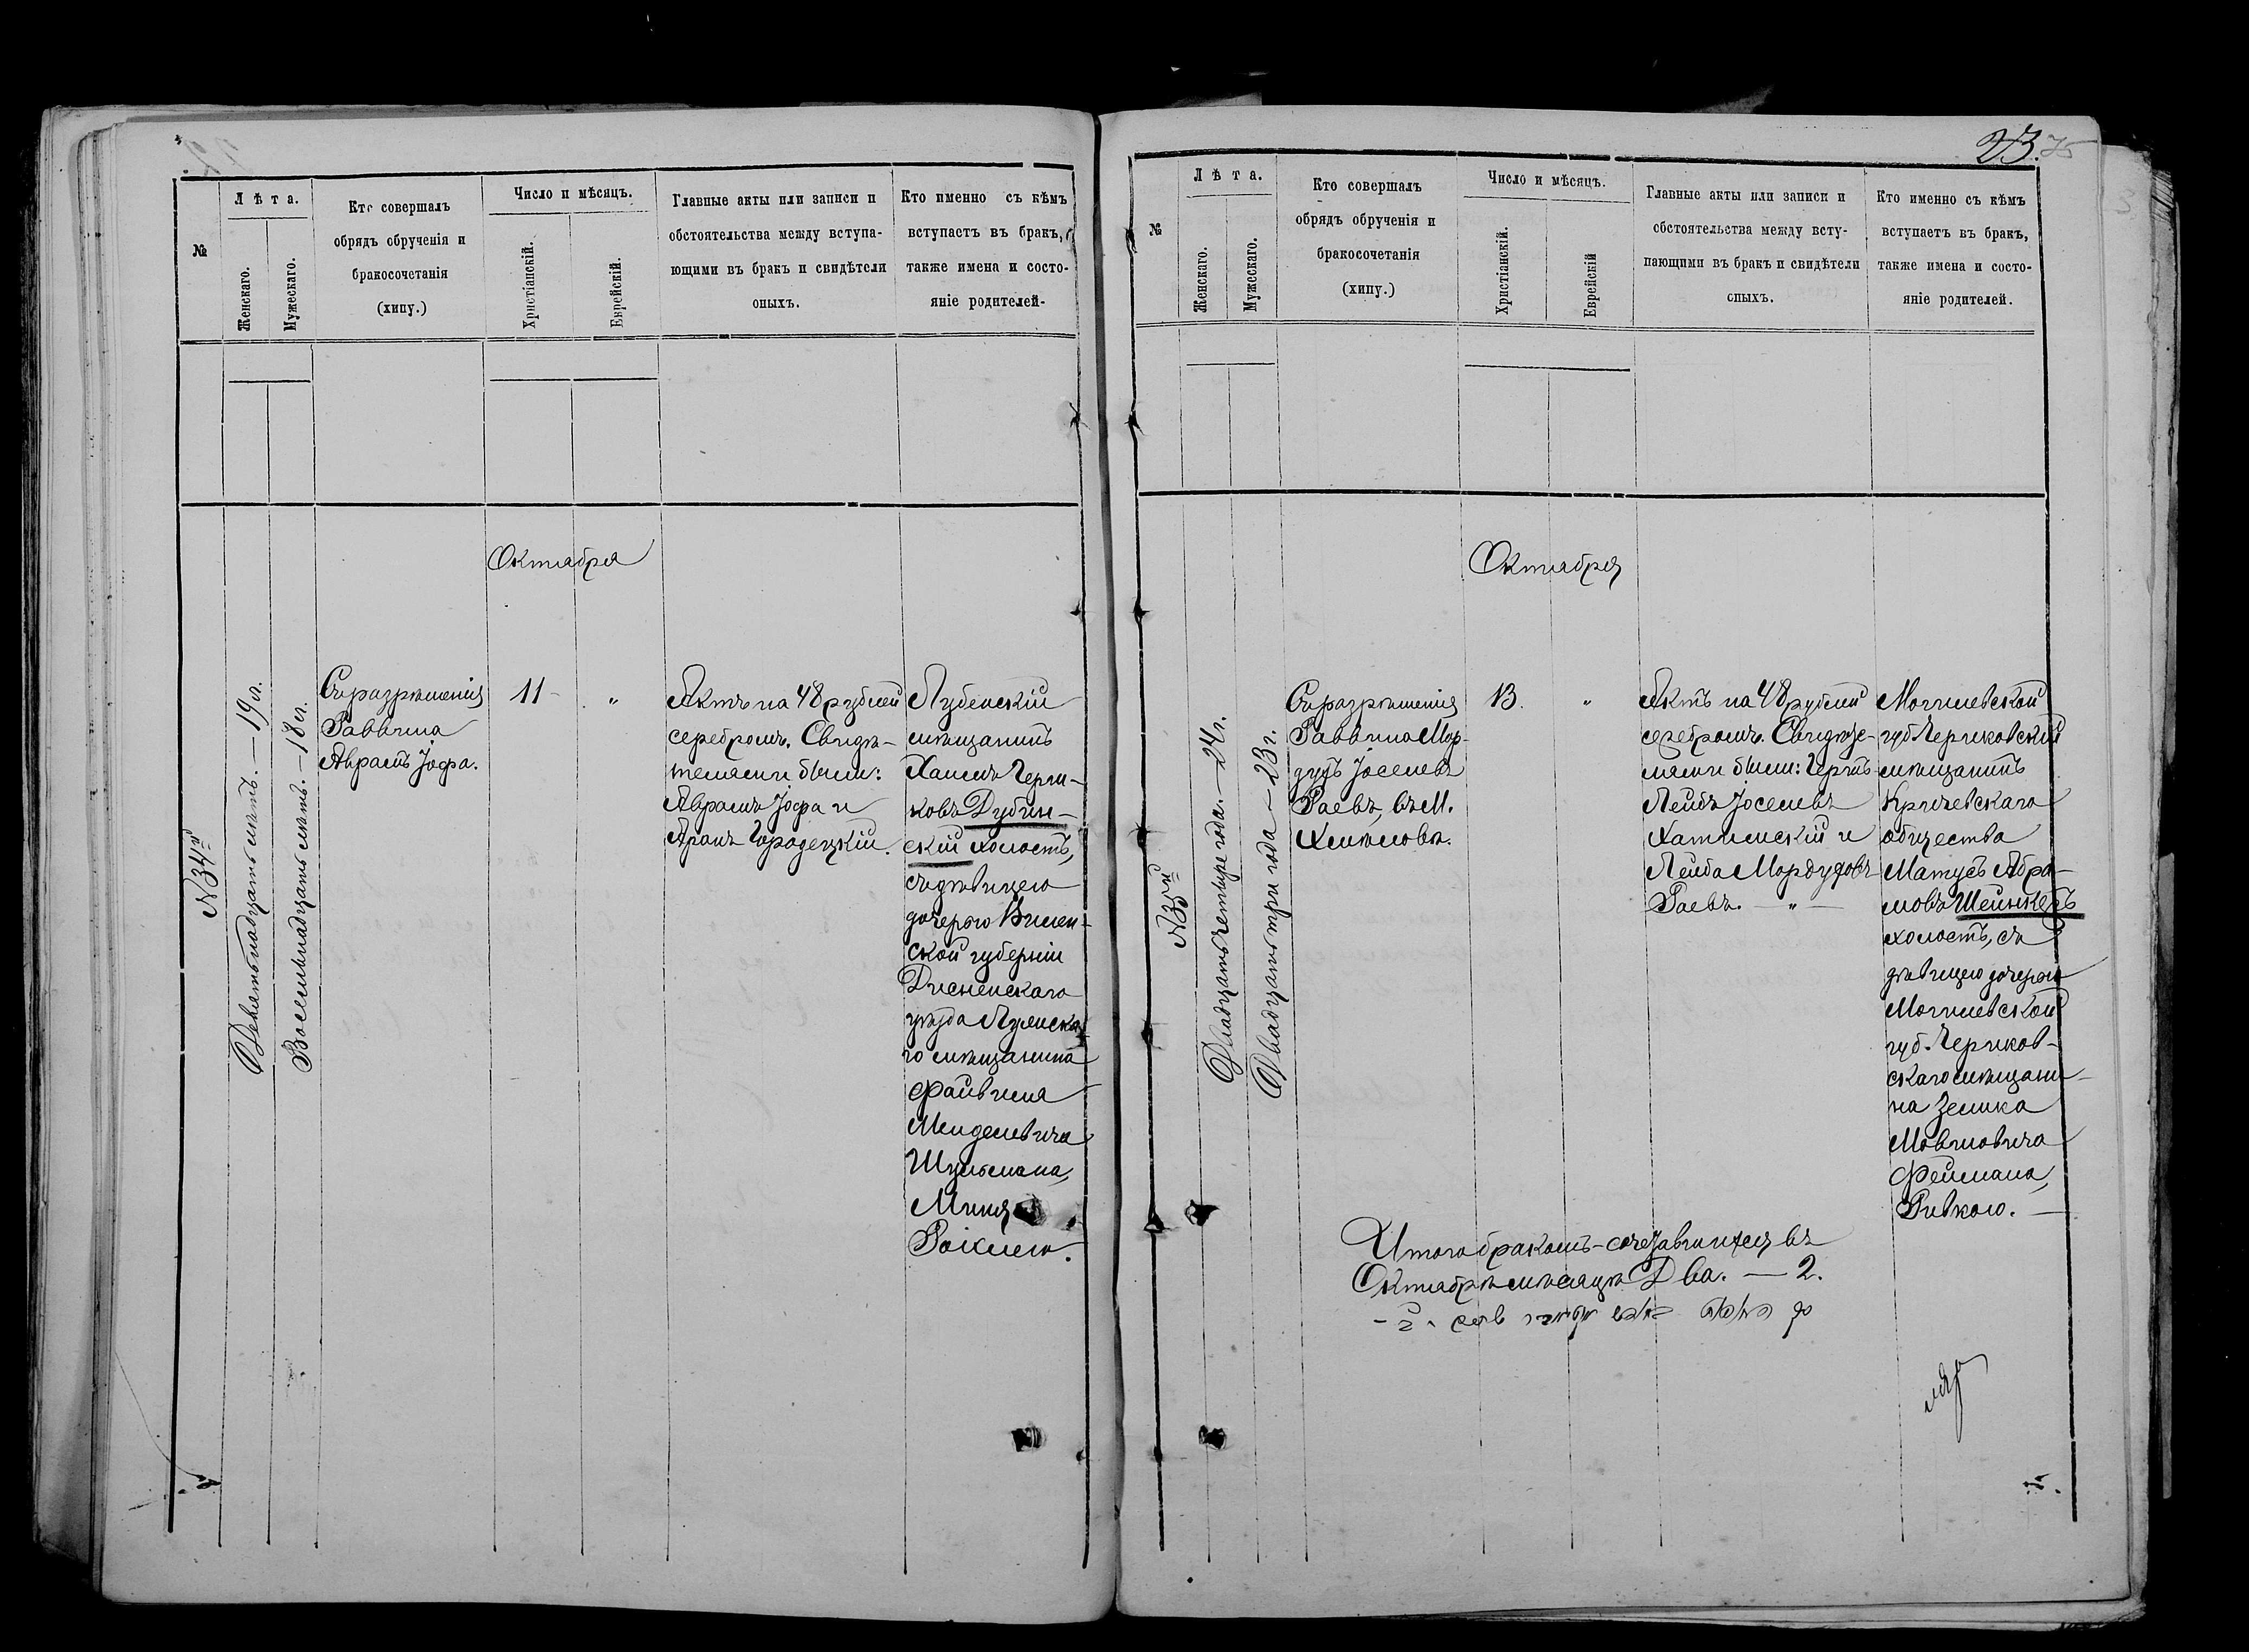 №
Лѣта.
Женскаго.
Мужескаго.
Кто совершалъ
обрядъ обрученія и
бракосочетанія
(хипу.)
Число и мѣсяцъ.
Христіанскій.
Еврейскій.
Главные акты или записи и
обстоятельства между вступа-
ющими въ бракъ и свидѣтели
оныхъ.
Кто именно съ кѣмъ
вступаетъ въ бракъ,
также имена и состо-
яніе родителей-
Октября
№34й
Девятьнадцать лѣтъ. — 19 л.
Восемьнадцать лѣтъ. — 18 л.
Съ разрѣшенія
Раввина
Абрамъ Іофа.
11
"
Актъ на 48 рублей
серебромъ. Свидѣ-
телями были:
Абрамъ Іофа и
Аронъ Городецкій.
Лубенскій
мѣщанинъ
Хаимъ Герш-
ковъ Дубин-
скій холостъ,
съ дѣвицею
дочерью Вилен-
ской губерніи
Дисненскаго
уѣзда Лужска
го мѣщанина
Файвиша
Менделевича
Шульмана,
Рохлею.
23. 75
№
Лѣта.
Женскаго.
Мужескаго.
Кто совершалъ
обрядъ обрученія и
бракосочетанія
(хипу.)
Число и мѣсяцъ.
Христіанскій.
Еврейскій
Главные акты или записи и
обстоятельства между всту-
пающими въ бракъ и свидѣтели
оныхъ.
Кто именно съ кѣмъ
вступаетъ въ бракъ,
также имена и состо-
яніе родителей.
Октября
№35й
Двадцать четыре года. — 24 г.
Двадцать три года — 23 г.
Съ разрѣшенія
Раввина Мор-
духъ Іоселевъ
Раевъ, въ М.
13.
"
Актъ на 48 рублей
серебромъ. Свидѣте-
лями были: Гершъ-
Лейбъ Іоселевъ
Хатимскій и
Лейба Мордуховъ
Раевъ. — " —
Могилевской
губ Чериковскій
мѣщанинъ
Кричевскаго
общества
Матусъ Абра-
мовъ Шейнкеръ
холостъ, съ
дѣвицею дочерью
Могилевской
губ. Чериков-
скаго мѣщани-
на Зелика
Мовшовича
Феймана,
Ривкою. —
Итого бракомъ-сочетавшихся въ
Октябрѣ мѣсяцѣ Два. — 2.